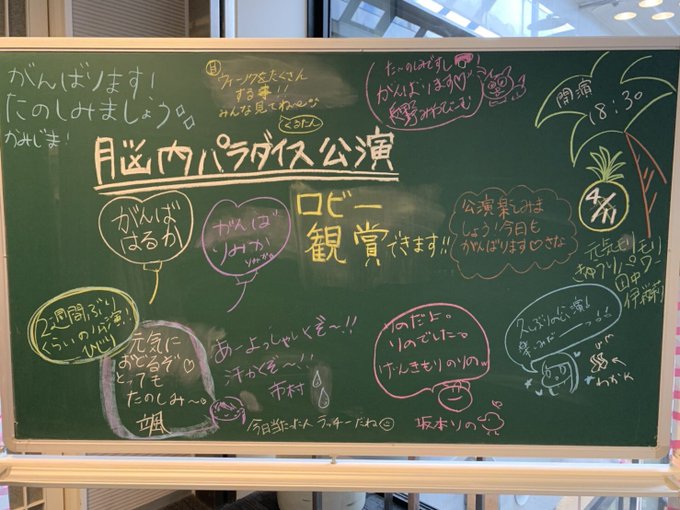 がんばります!
たのしみましょう
がみじま!
月
ウィンクをたくさん
する事!!
みんな見てね〜
くるたん
た〜のしみですし
がんばります♡
脳内パラダイス公演
開演
18:30
4/11
がんば
はるか
がんば
りみか
ロビー
観賞できます!!
公演楽しみま
しょう!今日も
がんばります♡さな
元気モリモリ
きゅうりパワー
田中
伊桜莉
2週間ぶり
くらいの公演!!
ひいり
元気に
おどるぞ♡
とっても
たのしみ〜
颯
あーよっしゃいくぞ〜!!
汗かくぞ〜!!
市村
今日当たった人ラッキーだね
りのだよ。
りのでした。
けんきもりのりの。
坂本りの
久しぶりの公演!
楽しみだ
わかな